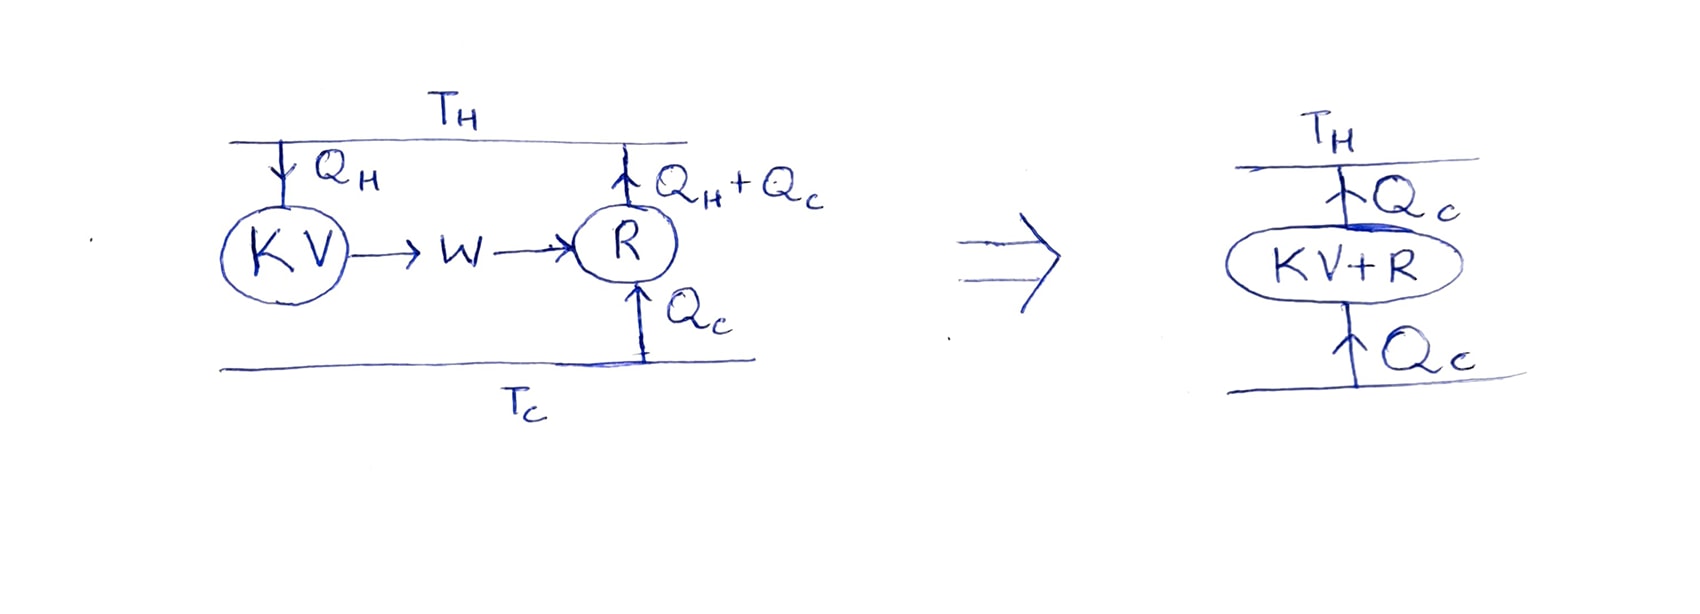 T_H
Q_H
Q_H + Q_C
K V → W → R
Q_C
T_C
⇒
T_H
Q_C
K V + R
Q_C